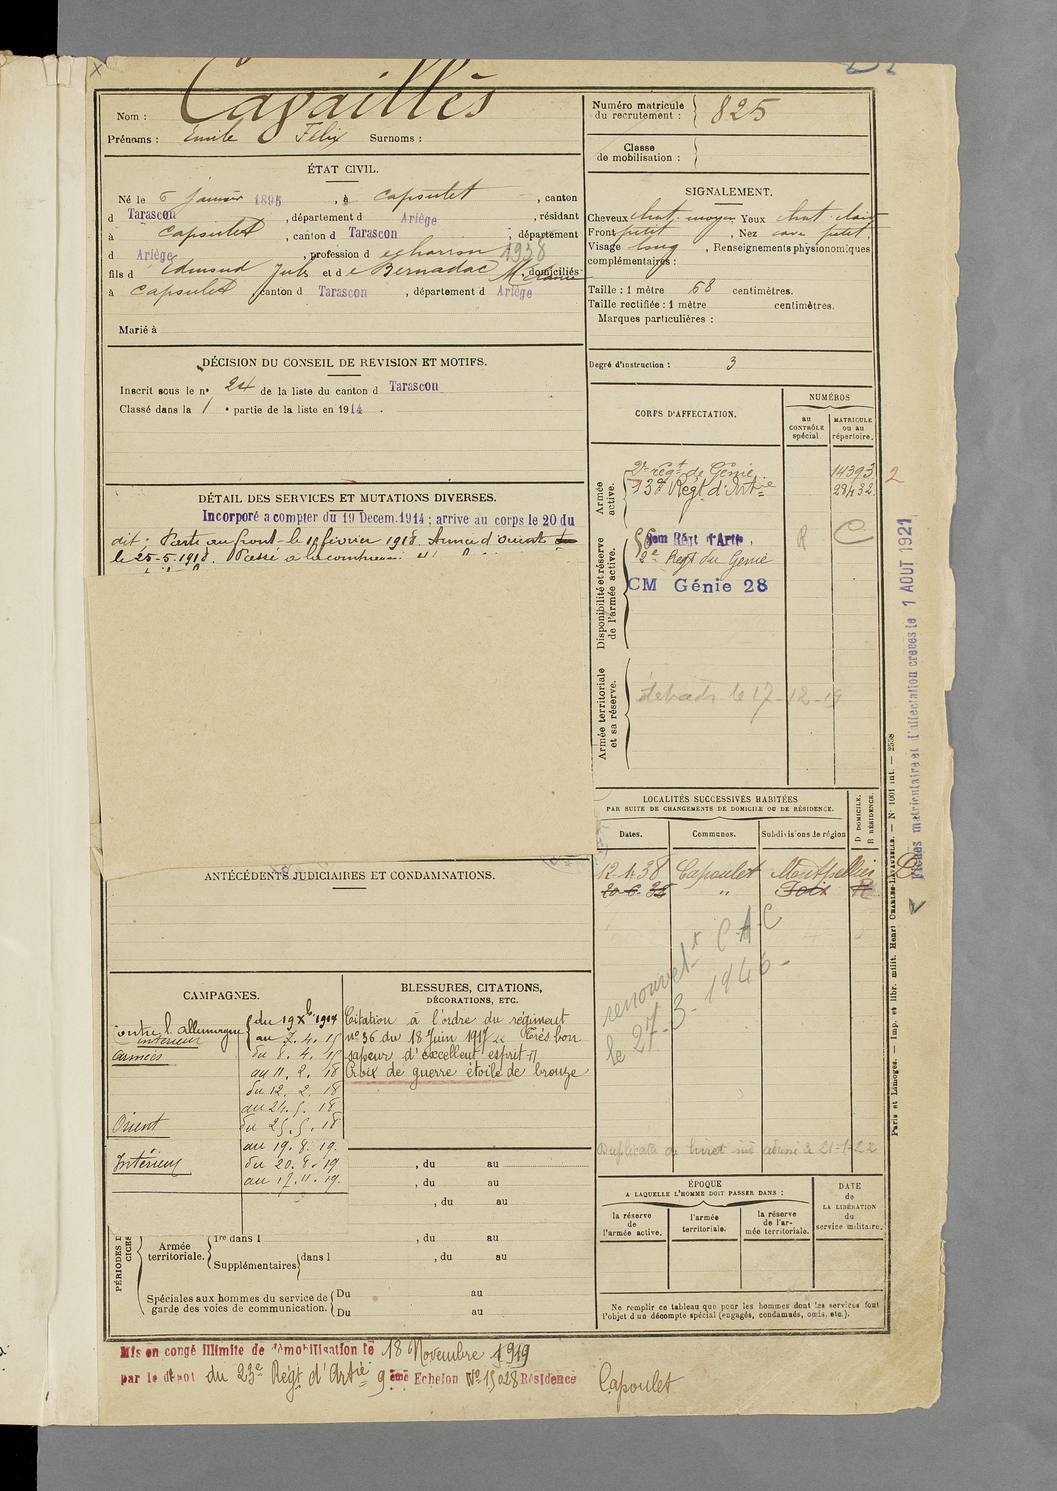 Cavaillès
Nom :
Prénoms : Emile Félix Surnoms :
Numéro matricule
du recrutement : 825
Classe
de mobilisation :
ÉTAT CIVIL.
Né le 6 Janvier 1895, à Capoulet, canton
d Tarascon, département d Ariège, résidant
à Capoulet, canton d Tarascon, département
d Ariège, profession d
1938
fils d Edmond Jules et de Bernadac Mélanie domiciliés
à Capoulet canton d Tarascon, département d Ariège
Marié à
SIGNALEMENT.
Cheveux chat. moyen Yeux chat. clair
Front petit, Nez cave petit
Visage long, Renseignements physionomiques
complémentaires :
Taille : 1 mètre 68 centimètres.
Taille rectifiée : 1 mètre centimètres.
Marques particulières :
Degré d'instruction : 3
DÉCISION DU CONSEIL DE REVISION ET MOTIFS.
Inscrit sous le n° 24 de la liste du canton d Tarascon
Classé dans la 1 e partie de la liste en 1914.
DÉTAIL DES SERVICES ET MUTATIONS DIVERSES.
Incorporé a compter du 19 Decem. 1914 ; arrive au corps le 20 du
dit : Parti au front le 12 février 1918. Armée d'Orient
le 25-5-1918. Passé à la
CORPS D'AFFECTATION.
NUMÉROS
au
CONTRÔLE
spécial.
MATRICULE
ou au
répertoire.
Armée
active.
2e régt de Génie 14393 2
13e Régt d'Artie 29432
Disponibilité et réserve
de l'armée active.
Régt d'Artie, R C
2e Regt du Génie
CM Génie 28
Armée territoriale
et sa réserve.
le 17-12-19
Fiches matriculaire et d'affectation créées le 1 AOUT 1921
LOCALITÉS SUCCESSIVES HABITÉES
PAR SUITE DE CHANGEMENTS DE DOMICILE OU DE RÉSIDENCE.
Dates.
Communes.
Subdivisions de région
D DOMICILE.
R RÉSIDENCE.
12.1.38 Capoulet Montpellier D
20-6-38 " Foix R
renouvelt C A C
le 27-3-1946-
Duplicata de livret 21-1-22
ANTÉCÉDENTS JUDICIAIRES ET CONDAMNATIONS.
CAMPAGNES.
Contre l'Allemagne
intérieur
du 19 Xbre 1914
au 7. 4. 15
armées
du 8. 4. 15
au 11. 2. 18
du 12. 2. 18
au 24. 5. 18
Orient
du 25. 5. 18
au 19. 8. 19.
Intérieur
du 20. 8. 19
au 17. 11. 19.
BLESSURES, CITATIONS,
DÉCORATIONS, ETC.
Citation à l'ordre du régiment
n° 36 du 18 Juin 1917 « Très bon
sapeur d'excellent esprit »
Croix de guerre étoile de bronze
, du au
, du au
, du au
Armée
territoriale.
1re dans l , du au
Supplémentaires dans l , du au
Spéciales aux hommes du service de
garde des voies de communication.
Du au
Du au
ÉPOQUE
A LAQUELLE L'HOMME DOIT PASSER DANS :
la réserve
de
l'armée active.
l'armée
territoriale.
la réserve
de l'ar-
mée territoriale.
DATE
de
LA LIBÉRATION
du
service militaire.
Ne remplir ce tableau que pour les hommes dont les services font
l'objet d'un décompte spécial (engagés, condamnés, omis, etc.).
Paris et Limoges. — Imp. et libr. milit. Henri CHARLES-LAVAUZELLE. — N° 1001 int. — 2558
Mis en congé illimité de démobilisation le 18 Novembre 1919
par le dépot du 23e Régt d'Artie 9ème Echelon No 15028 Résidence Capoulet